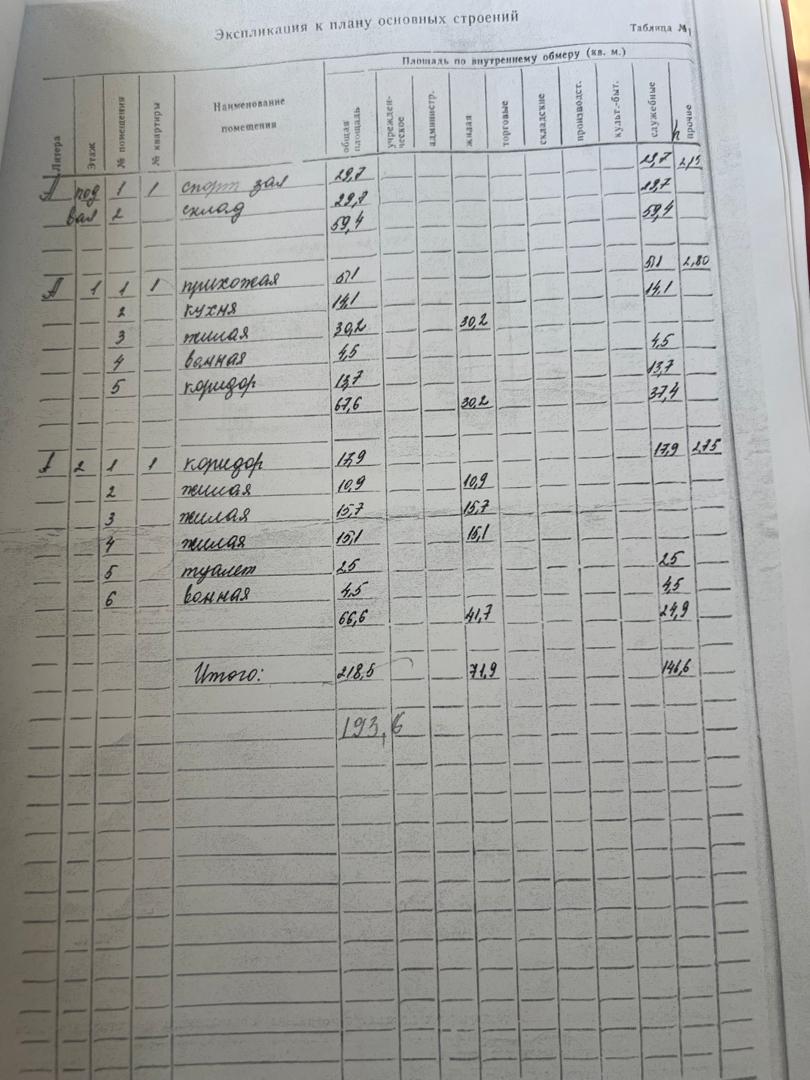 Экспликация к плану основных строений
Таблица №1
Площадь по внутреннему обмеру (кв. м.)
Литера Этаж № помещения № квартиры Наименование помещения общая площадь учрежден-ческое администр. жилая торговые складские производст. культ.-быт. служебные h прочие
А под 1 1 спорт зал 29,7 29,7 2,15
вал 2 склад 29,7 29,7
59,4 59,4
А 1 1 1 прихожая 5,1 5,1 2,80
2 кухня 14,1 14,1
3 жилая 30,2 30,2
4 ванная 4,5 4,5
5 коридор 13,7 13,7
67,6 30,2 37,4
А 2 1 1 коридор 17,9 17,9 2,75
2 жилая 10,9 10,9
3 жилая 15,7 15,7
4 жилая 15,1 15,1
5 туалет 2,5 2,5
6 ванная 4,5 4,5
66,6 41,7 24,9
Итого: 218,5 71,9 146,6
193,6